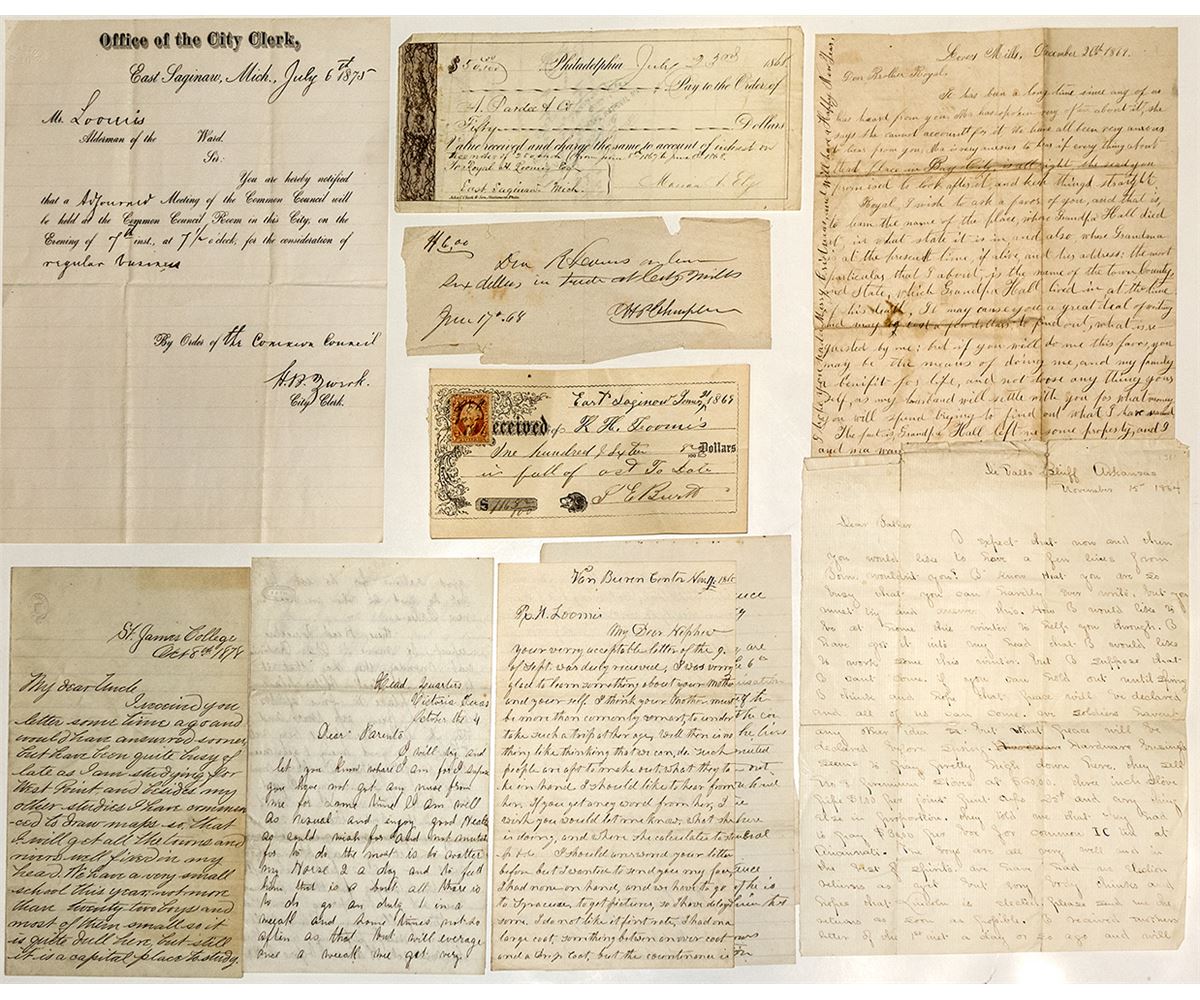 Office of the City Clerk,
East Saginaw, Mich., July 6th 1875
Mr. Loomis
Alderman of the Ward.
Sir:
You are hereby notified
that a Adjourned Meeting of the Common Council will
be held at the Common Council Room in this City, on the
Evening of 7th inst., at 7 1/2 o'clock, for the consideration of
regular business
By Order of the Common Council
City Clerk.
Philadelphia July 23rd 186
Pay to the Order of
A. Pardee & Co
Fifty Dollars
Value received and charge the same to account of interest on
To Royal H. Loomis Esq
East Saginaw Mich.
$6,00
six dollars in trade at City Mills
June 17th 68
East Saginaw
Received of R. H. Loomis
One hundred & Sixteen Dollars
in full of act To Date
December 26th 1869.
Dear Brother Royal,
It has been a long time since any of us
has heard from you, Ma has spoken very often about it, she
says she cannot account for it. We have all been very anxious
to hear from you. Ma is very anxious to hear if every thing about
that place in Bay City is all right, she said you
promised to look after it, and keep things straight.
Royal, I wish to ask a favor of you, and that is,
to learn the name of the place, where Grandpa Hall died
at, in what state it is in and also, where Grandma
is at the present time, if alive, and her address: the most
particulars that I about, is the name of the town County,
and State, which Grandpa Hall lived in at the time
of his death, It may cause you a great deal of writing
and may cost a few dollars to find out, what is re-
quested by me; but if you will do me this favor, you
may be the means of doing me, and my family
a benefit for life, and not loose any thing your
self, as my husband will settle with you for what money
you will spend trying to find out what I have
The fact is, Grandpa Hall left me some property, and I
and ma
I hope you had a Merry Christmas and will have a Happy New Year,
De Valls Bluff Arkansas
November 15th 1864
Dear Father
I expect that now and then
you would like to have a few lines from
wouldn't you? I know that you are so
busy that you can hardly ever write, but you
must try and
be at home this winter to help you through. I
have got it into my head that I would like
to work some this winter. but I suppose that
I want some. if you can hold out until Spring
I think and hope that peace will be declared
and all of us can come. We soldiers havent
any other idea but what peace will be
declared by Spring. Hardware Evengs
seems to be pretty high down here. they sell
else in proportion. they told me that they had
Cincinnati. The boys are all very well and in
the best of spirits. we had an election
hopes that Lincoln is elected please send me the
returns as soon as possible. I rec'd another
letter of the 1st inst. a day or so ago and will
St. James College
Oct 8th 1878
My dear Uncle
I received you
letter some time ago and
would have answered sooner
but have been quite busy of
late as I am studying for
West Point and besides my
other studies I have commenc-
ed to draw maps so that
I will get all the towns and
rivers well fixed in my
head. We have a very small
school this year not more
than twenty two boys and
most of them small so it
is quite dull here, but still
it is a capital place to study.
Head Quarters
Victoria Texas
October the 4
Dear Parents
I will try and
let you know where I am for I supose
you have not got any news from
me for some time I am well
as usual and enjoy good Health
as could wish for and not much
for to do the most is to water
my Horse 2 a day and to feed
him that is a bout all there is
to do go on duty 1 in a
weeak and some times not so
often as that but will everage
once a weeak we get very
Van Buren Center Nov
R. H. Loomis
My Dear Nephew
Your verry acceptable letter of the 9.
of Sept. was duly recieved, I was verry
glad to learn something about your Mother
and your self. I think your Mother must
be more than commonly smart, to under
take such a trip at her age, Well there is no
thing like thinking that we can do, Such
people are apt to make out, what they to
ke in hand. I should like to hear from
her, If you get any word from her, I
wish you would let me know, what she
is doing, and where she calculates to
I should answered your letter
before but I wanted to send you my face,
I had none on hand, and we have to go
to Syracuse to get pictures, so I have delay
som. I do not like it first rate, I had on a
large coat, something between an over coat
and a Coat, but the countinance is